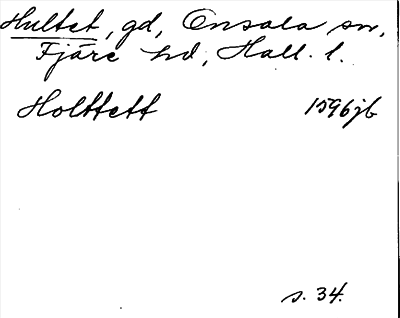 Hultet, gd, Onsala sn,
Fjäre hd, Hall. l.
Holttett 1596jb
s. 34.